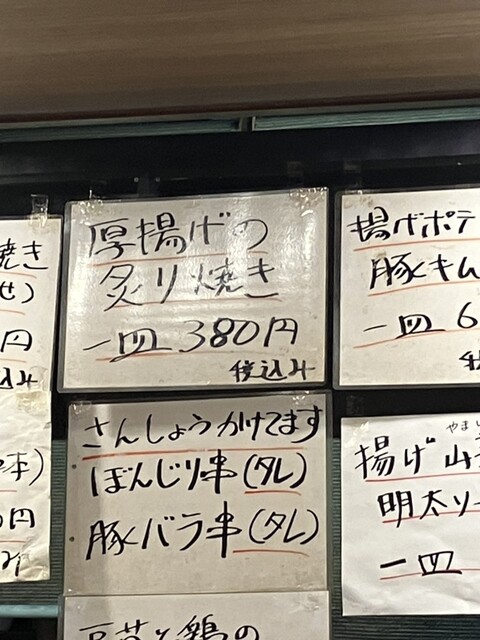 焼き
せ)
円
込み
本)
0円
厚揚げの
炙り焼き
一皿 380円
税込み
さんしょうかけてます
ぼんじり串(タレ)
豚バラ串(タレ)
豆苗と鶏の
揚げポテ
豚キム
一皿 6
税
やま
揚げ 山
明太ソー
一皿